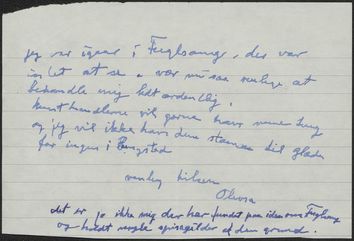 jeg var igaar i Fuglsang, der var
intet at se. vær nu saa venlig at
behandle mig lidt ordentlig,
kunsthandlerne vil gerne have mine ting
og jeg vil ikke have dem staaende til
for ingen i Ringsted
venlig hilsen
Olivia
det er jo ikke mig der har fundet paa ideen om Fuglsang
og holdt nogle af den grund.